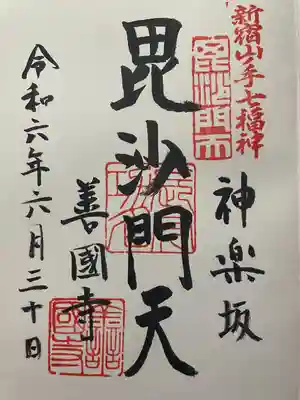 新宿山ノ手七福神
神楽坂
毘沙門天
善國寺
令和六年六月三十日